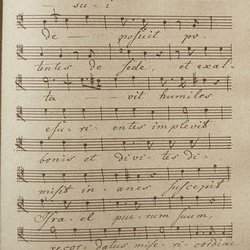 su - i
de - posuit po -
tentes de sede, et exal -
ta - vit humiles
esuri - entes implevit
bonis et divites di -
misit inanes suscepit
Israel puerum suum
recordatus miseri - cordiae